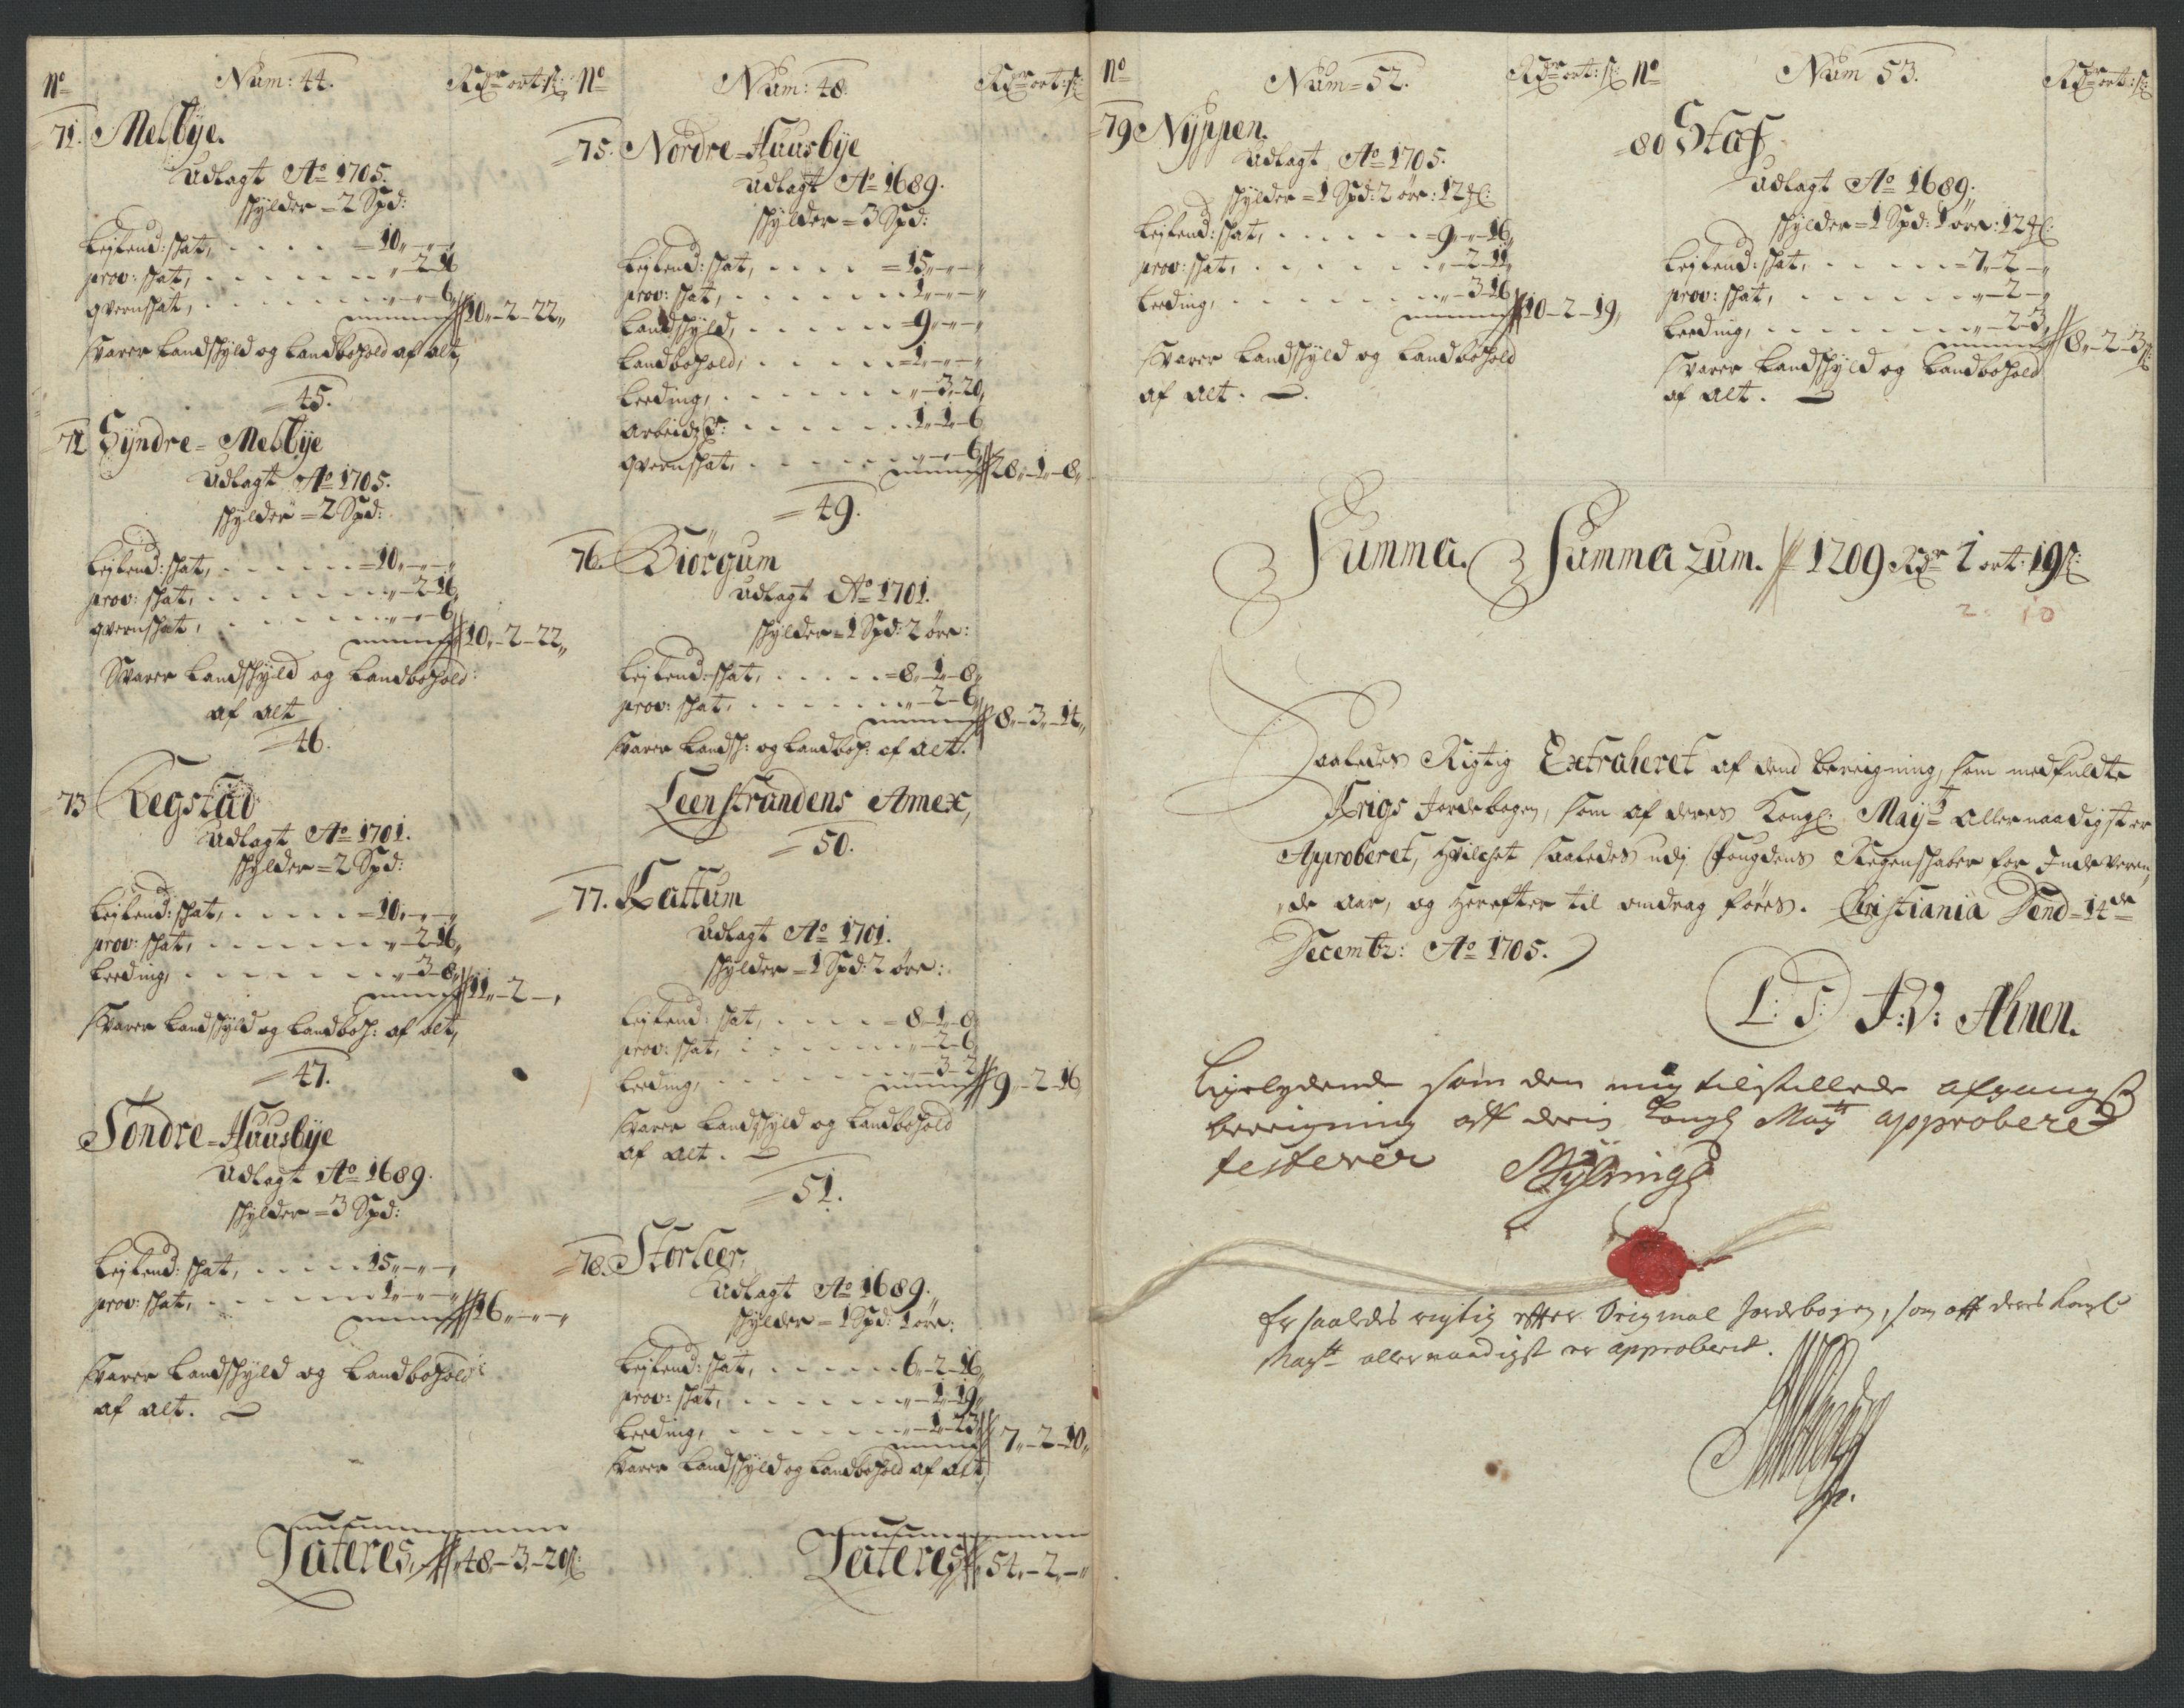 No Num: 44. Rdr ort: s:
71. Melbÿe.
Udlagt Ao 1705.
schÿlder = 2 Spd:
Leÿlend: schat, . . . . = 10,,-,,-,,
prov: schat, . . . . ,,-2-16
qvernschat, . . . . ,,-,,-6,, 10,,-2-22,,
Svarer Landschÿld og Landbohold af alt,
45.
72 Sÿndre = Melbÿe
Udlagt Ao 1705.
schÿlder = 2 Spd:
Leÿlend: schat, . . . . = 10,,-,,-,,
prov: schat, . . . . ,,-2-16,
qvernschat, . . . . ,,-,,-6, 10,,-2-22,,
Svarer Landschÿld og Landbohold
af alt
46.
73 Regstad
Udlagt Ao 1701.
schÿlder = 2 Spd:
Leÿlend: schat, . . . . = 10,,-,,-,,
prov: schat, . . . . ,,-2-16,
Leeding, . . . . ,,-3-8,, 11,,-2-,,
Svarer Landschÿld og Landboh: af alt,
47.
Söndre = Huusbÿe
Udlagt Ao 1689.
schÿlder = 3 Spd:
Leÿlend: schat, . . . . 15,,-,,-,,
prov: schat, . . . . 1,,-,,-,, 16,,-,,-,,
Svarer Landschÿld og Landbohold
af alt.
Lateres, 48,-3-20s:
No Num: 48. Rdr ort: s:
75. Nordre = Huusbÿe
Udlagt Ao 1689.
schÿlder = 3 Spd:
Leÿlend: schat, . . . . = 15,,-,,-,,
prov: schat, . . . . 1,,-,,-,,
Landschÿld, . . . . = 9,,-,,-,,
Landbohold, . . . . = 1,,-,,-,,
Leeding, . . . . ,,-3-20,
Arbeidz: . . . . 1-1-6
qvernschat, . . . . ,,-,,-6, 28,,-1-8,
49.
76. Biörgum
Udlagt Ao 1701.
schÿlder = 1 Spd: 2 öre:
Leÿlend: schat, . . . . = 8,,-1-8,
prov: schat, . . . . ,,-2-6, 8,,-3,,-14,,
Svarer Landsch: og Landboh: af alt.
Leenstrandens Annex,
50.
77. Kattum
Udlagt Ao 1701.
schÿlder = 1 Spd: 2 öre:
Leÿlend: schat, . . . . = 8-1-8
prov: schat, . . . . ,,-2-6
Leeding, . . . . ,,-3-2, 9,,-2-16
Svarer Landschÿld og Landbohold
af alt.
51.
78. Storleer,
Udlagt Ao 1689.
schÿlder = 1 Spd: 1 öre:
Leÿlend: schat, . . . . 6,-2-16,
prov: schat, . . . . ,,-1-19,
Leeding, . . . . ,,-1-23, 7,,-2-10,
Svarer Landschÿld og Landbohold af alt,
Lateres 54,-2,-,,
No Num = 52. Rdr ort: s:
79 Nÿppen.
Udlagt Ao 1705.
schÿlder = 1 Spd: 2 öre: 12 s:
Leÿlend: schat, . . . . = 9,,-,,-16,
prov: schat, . . . . ,,-2-11,
Leeding, . . . . ,,-3-16, 10-2-19,
Svarer Landschÿld og Landbohold
af alt.
No Num 53. Rdr ort: s:
80 Staf
Udlagt Ao 1689.
schÿlder = 1 Spd: 1 öre: 12 s:
Leÿlend: schat, . . . . = 7,,-2-,,
prov: schat, . . . . ,,-2-,,
Leeding, . . . . ,,-2-3, 8,-2-3s:
Svarer Landschÿld og Landbohold
af alt.
Summa. Summarum. 1209 Rdr 1 ort: 19s:
2. 10
Saaledes Rigtig Extraheret af dend bereigning, som medfuldte
Krigs Jordebogen, som af deres Kongl: Maÿt allernaadigst er
Approberet, hvilchet saaledes udj Fougdens Regenschaber for Indeveren-
,,de aar, og herefter til omdrag föres. Christiania Dend = 14de
Decembr: Ao 1705.
L: S: J: V: Ahnen.
Ligelydende som den mig tilstillede afgangs
bereigning aff deris Kongl Maytt approbered
testerer
Er saaledes rigtig efter Original Jordebogen, som aff deres Kongl
Maytt allernaadigst er approberit.